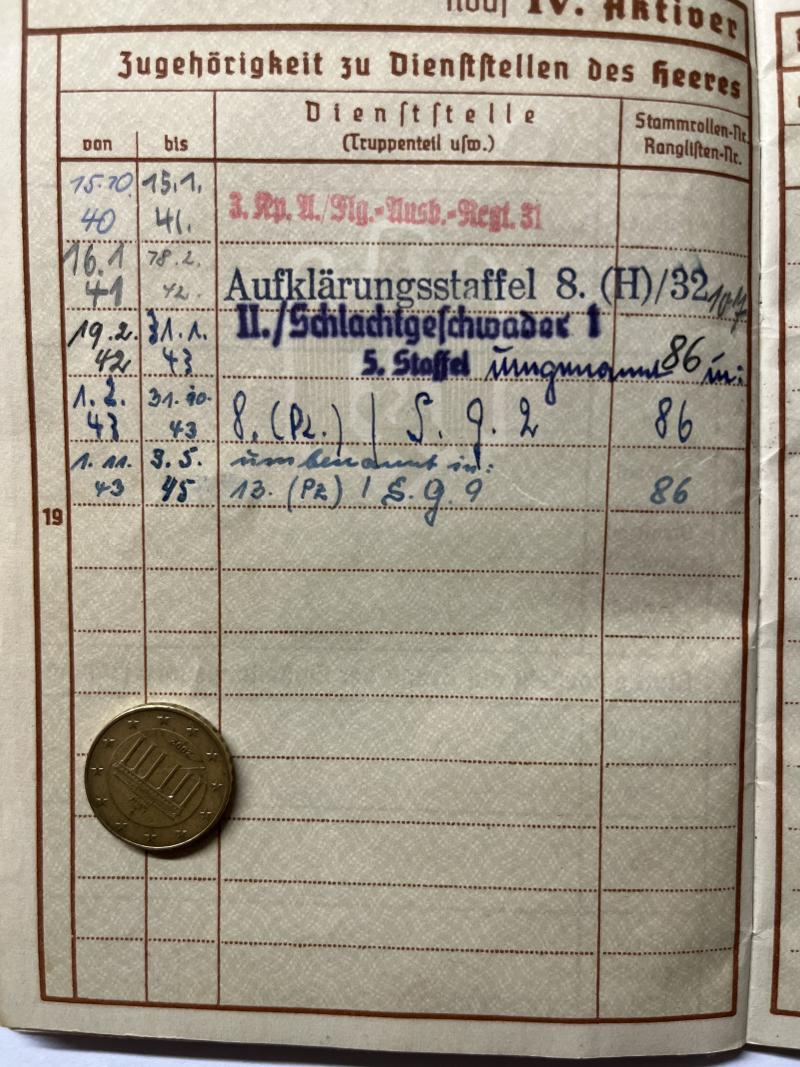 IV. Aktiver
Zugehörigkeit zu Dienststellen des Heeres
von bis Dienststelle (Truppenteil usw.) Stammrollen-Nr. Ranglisten-Nr.
15.10. 40 15.1. 41. 3. Kp. A./Flg.-Ausb.-Regt. 31
16.1 41 18.2. 42. Aufklärungsstaffel 8. (H)/32
19.2. 42 31.1. 43 II./Schlachtgeschwader 1
5. Staffel umgenannt 86 in:
1.2. 43 31.10. 43 8. (Pz.) / S. g. 2 86
1.11. 43 3.5. 45 umbenannt in:
13. (Pz) / S. g. 9 86
19
2002